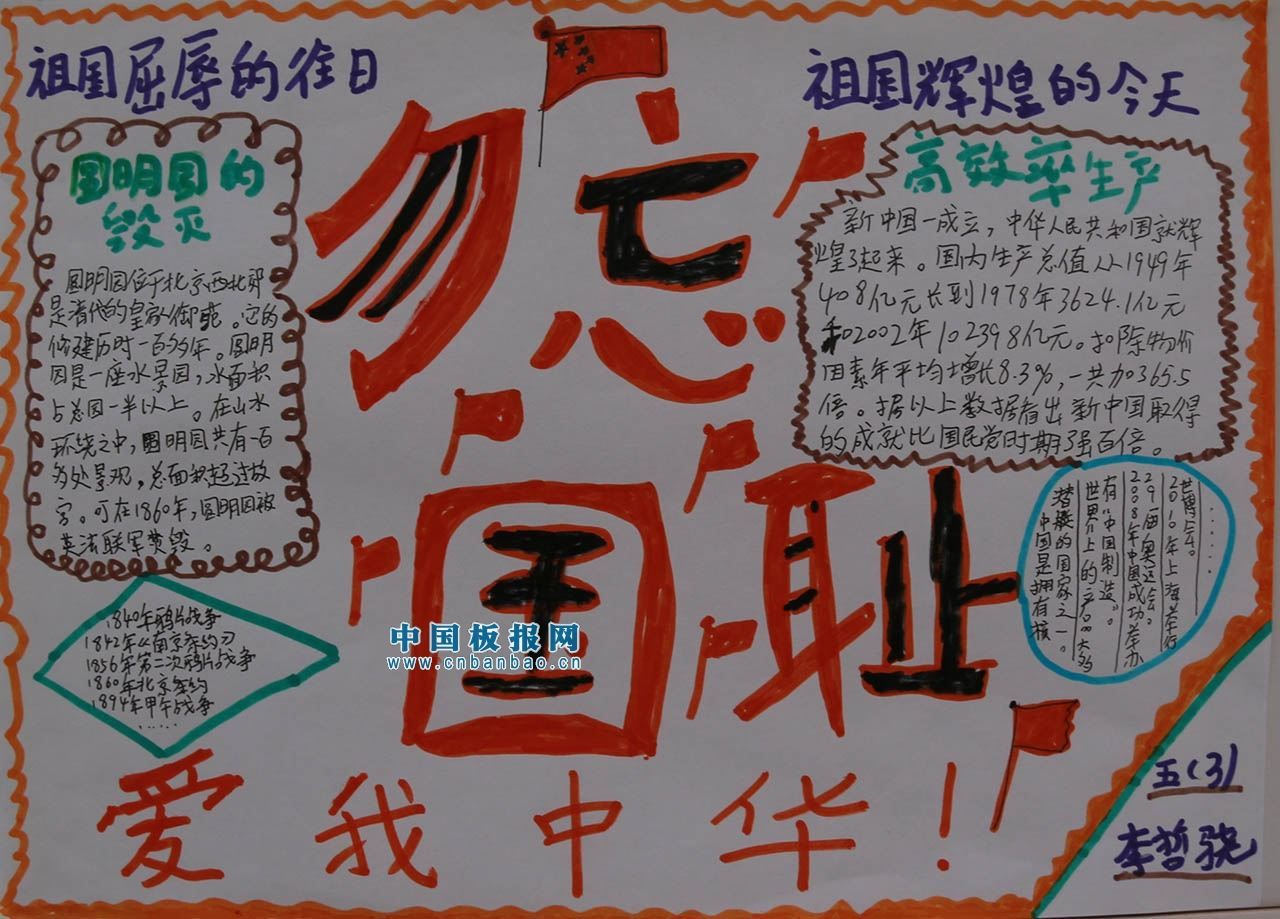 祖国屈辱的往日
圆明园的
毁灭
圆明园位于北京西北郊
是清代的皇家御苑。它的
修建历时一百多年。圆明
园是一座水景园，水面积
占总园一半以上。在山水
环绕之中，圆明园共有一百
多处景观，总面积超过故
宫。可在1860年，圆明园被
英法联军焚毁。
1840年鸦片战争
1842年《南京条约》
1856年第二次鸦片战争
1860年北京条约
1894年甲午战争
……
勿忘
国耻
祖国辉煌的今天
高效率生产
新中国一成立，中华人民共和国就辉
煌了起来。国内生产总值从1949年
408亿元长到1978年3624.1亿元
和2002年102398亿元。扣除物价
因素年平均增长8.3%，一共加365.5
倍。据以上数据看出新中国取得
的成就比国民党时期强百倍。
中国是拥有核
潜艇的国家之一。
世界上的产品大多
有“中国制造”。
2008年中国成功举办
29届奥运会。
2010年上海举行
世博会。
……
中国板报网
www.cnbanbao.cn
爱我中华！
五(3)
李哲骁